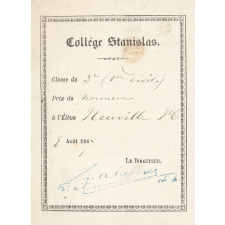 Collége Stanislas.
Classe de 3e (1re divis.)
Prix de
à l'Élève Neuville
8 Août 186
LE DIRECTEUR,